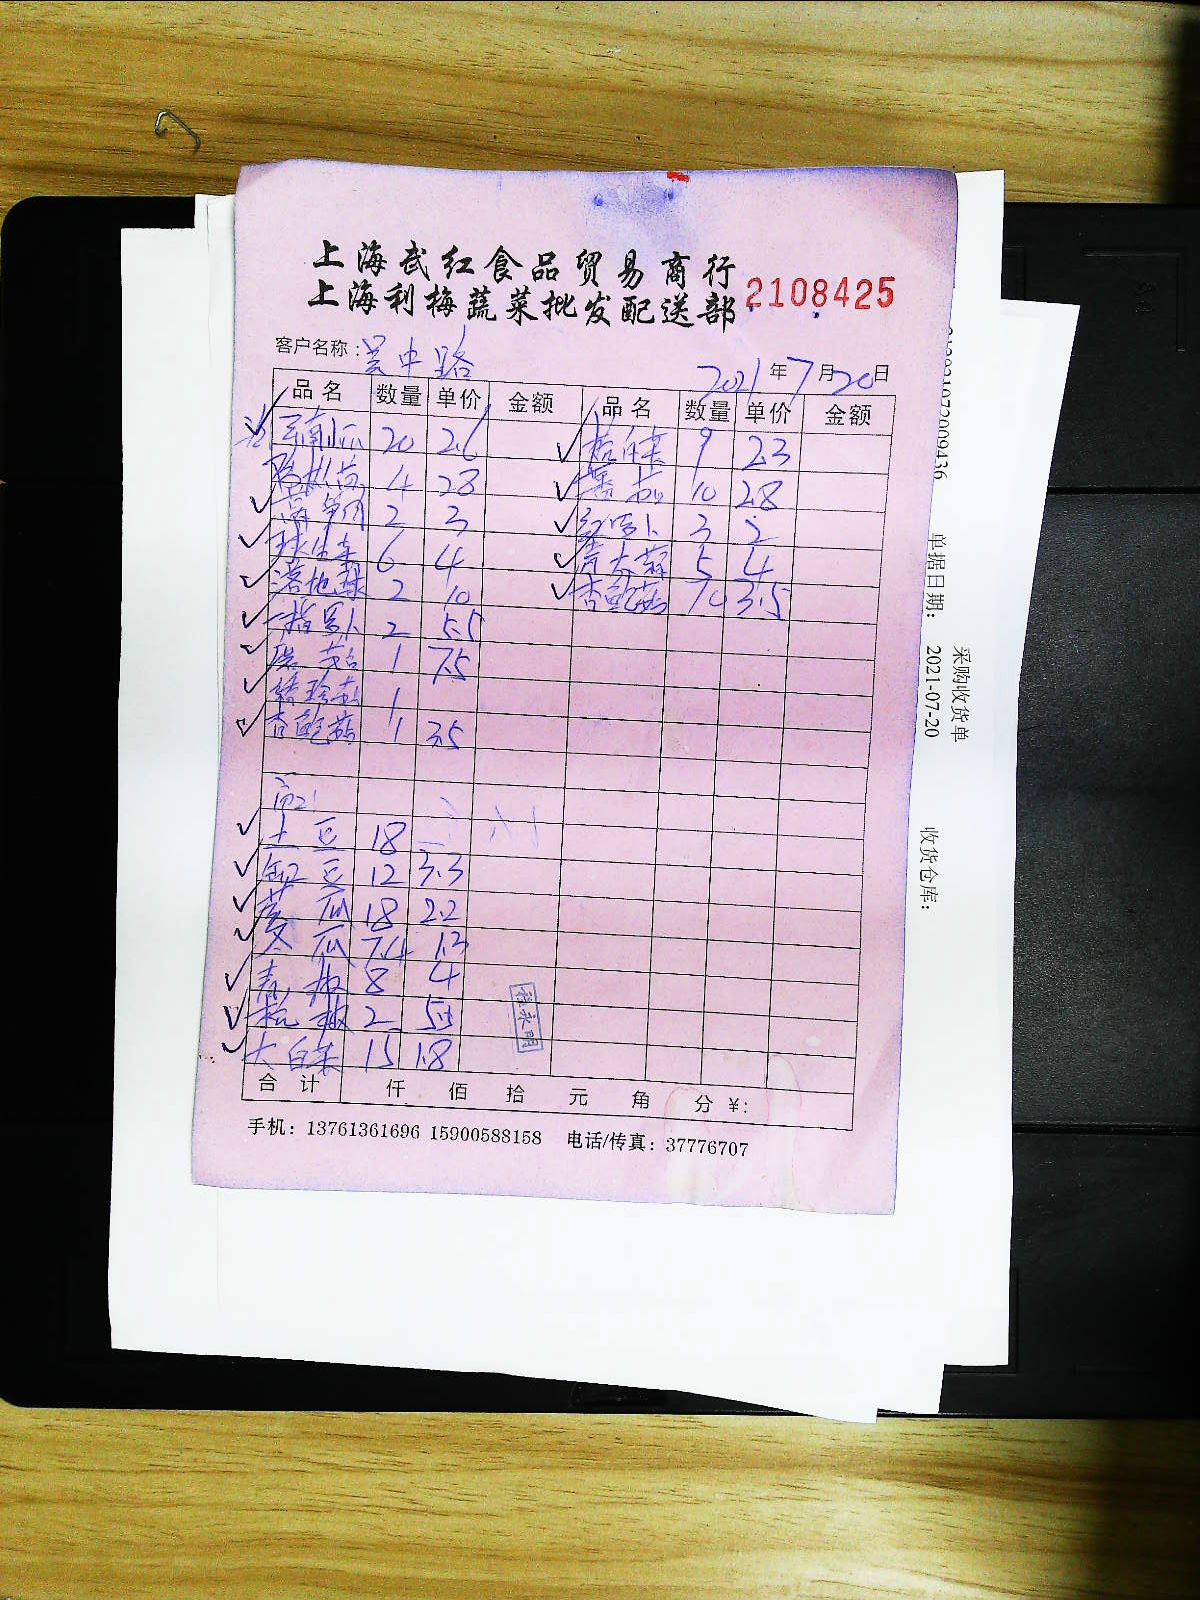 上海武红食品贸易商行
上海利梅蔬菜批发配送部
2108425
客户名称：吴中路
2021年7月20日
品名 数量 单价 金额 品名 数量 单价 金额
云南小瓜 20 2.6
9 2.3
4 2.8
番茄 10 2.8
2 3
红罗卜 3 2
球生菜 6 4
青大蒜 5 4
2 10
杏鲍菇 70 3.5
一指罗卜 2 5.5
1 7.5
1
杏鲍菇 1 3.5
土豆 18
缸豆 12 3.3
黄瓜 18 2.2
冬瓜 74 1.3
青椒 8 4
2
大白菜 15 1.8
合计 仟 佰 拾 元 角 分 ¥:
手机：13761361696 15900588158 电话/传真：37776707
采购收货单
单据日期： 2021-07-20
收货仓库：